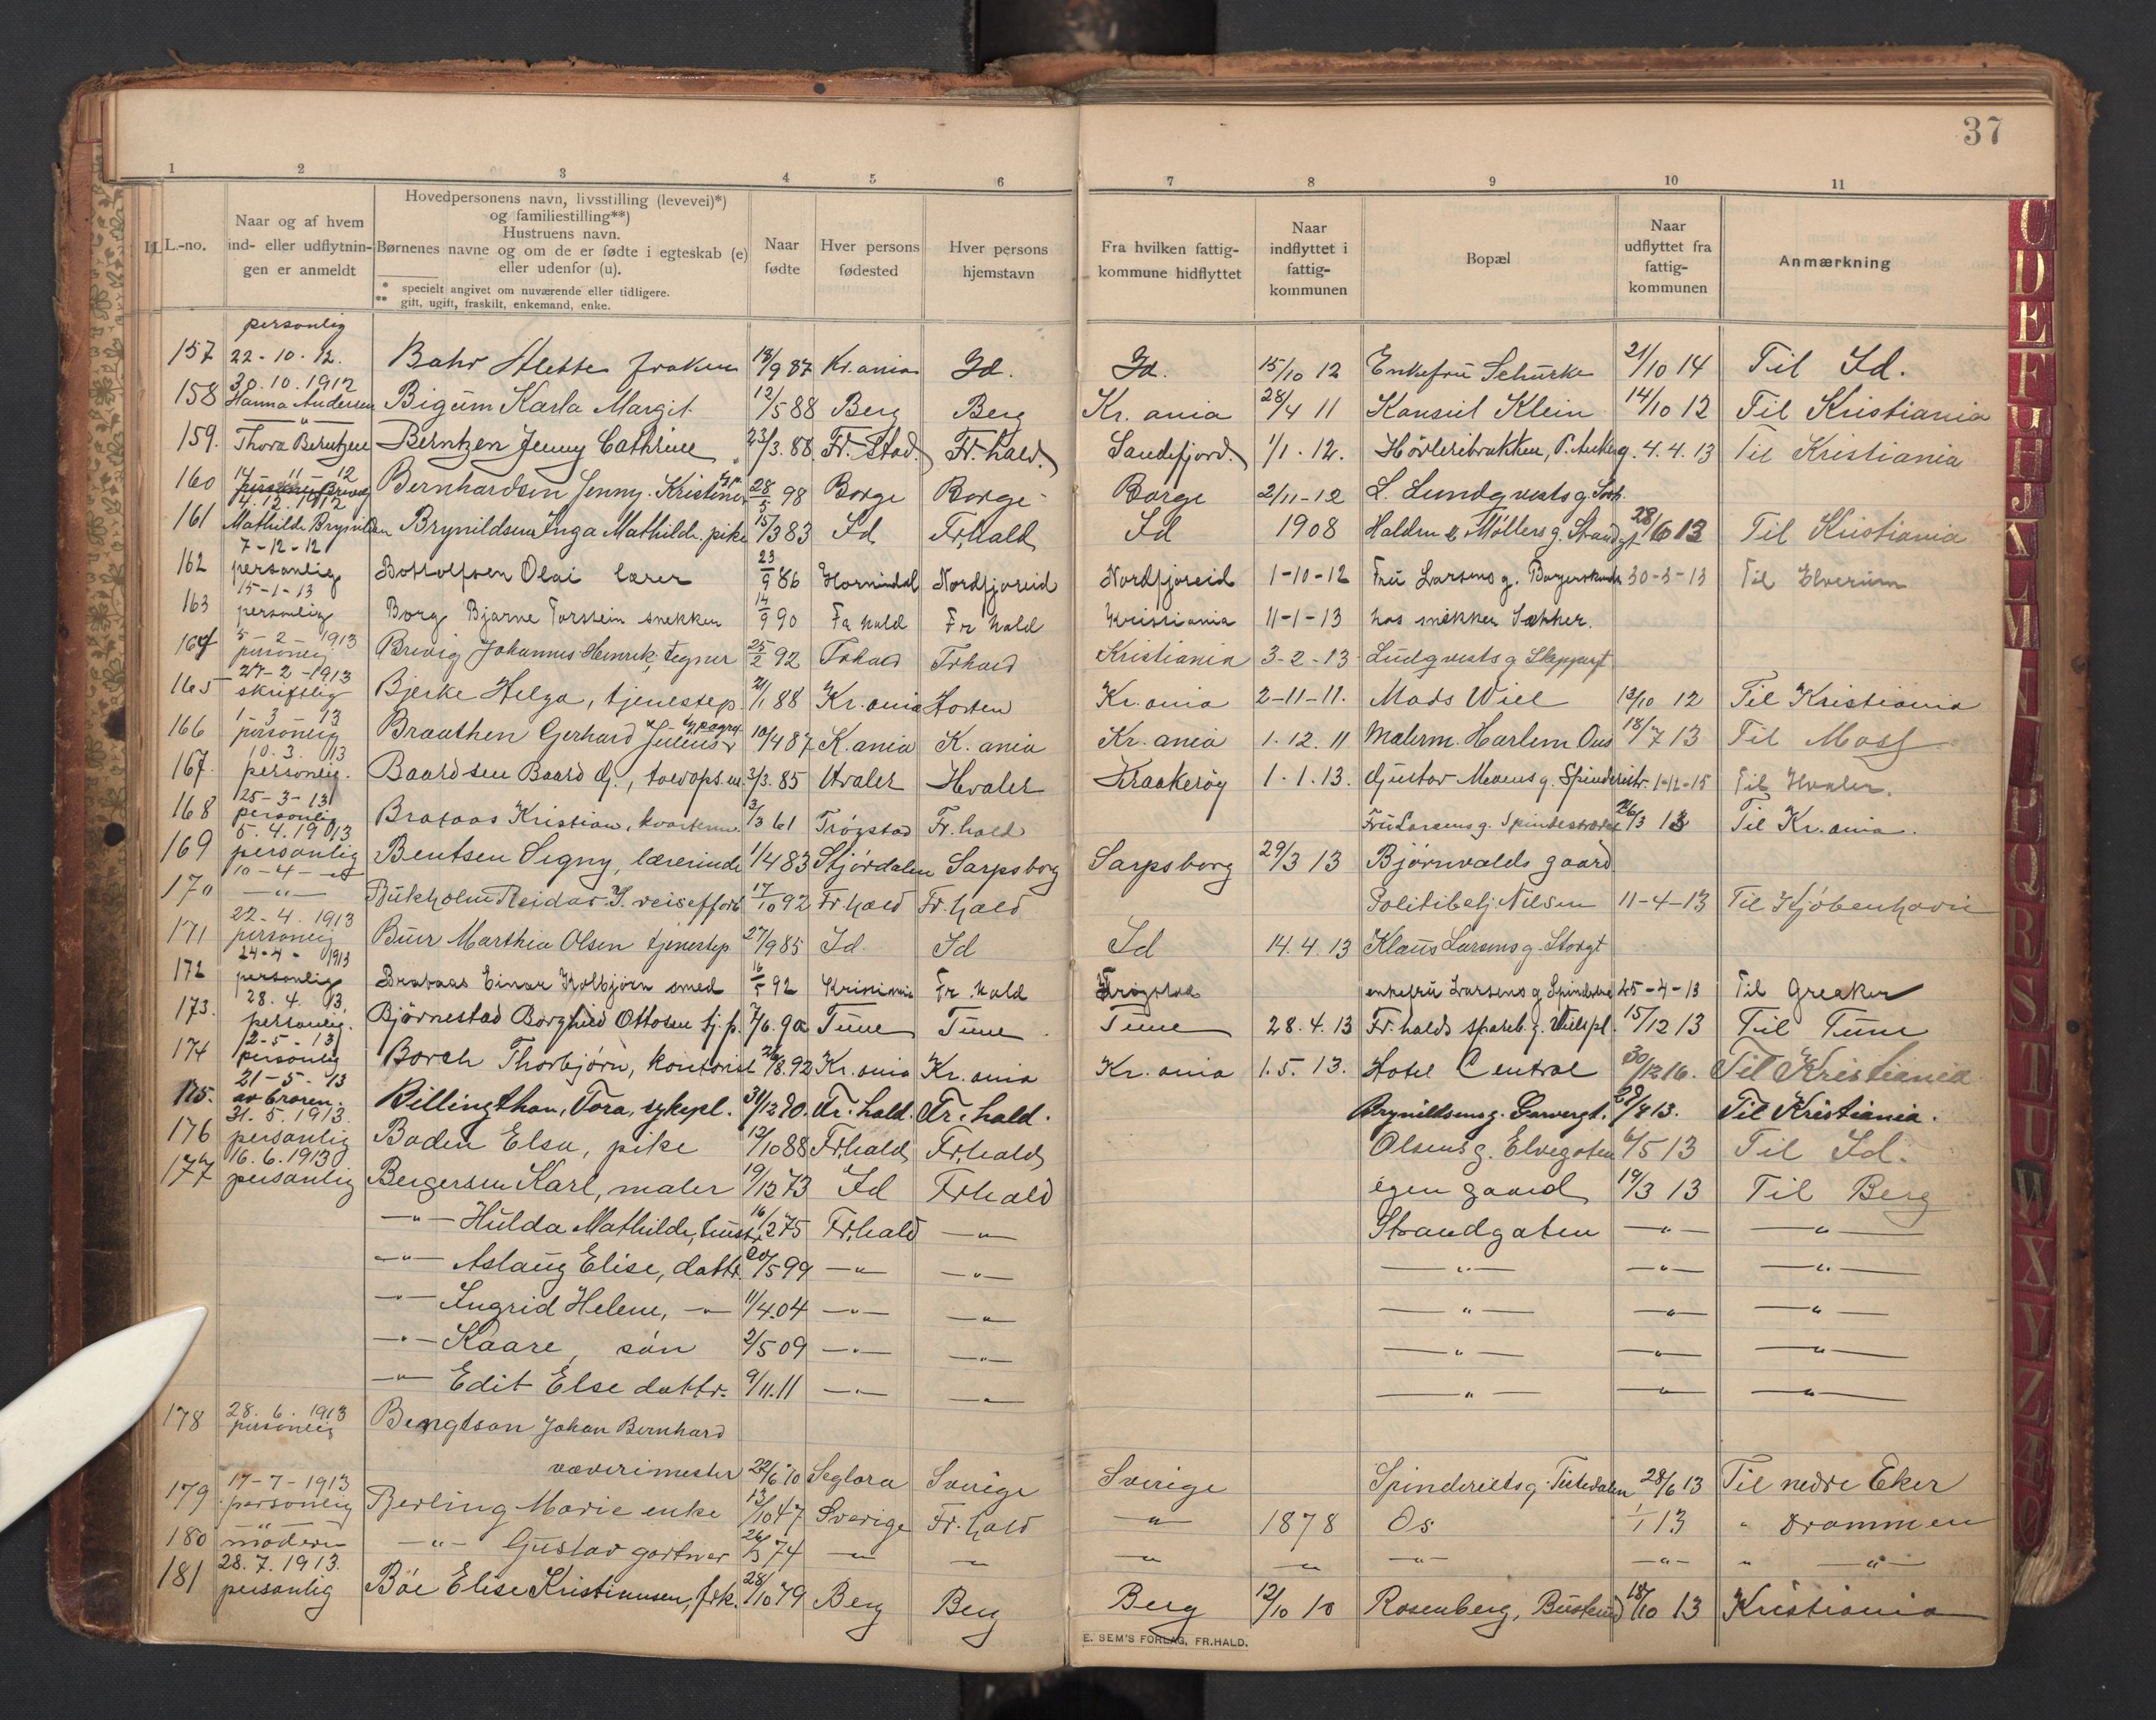 37
1 2 3 4 5 6 7 8 9 10 11
L.-no.
Naar og af hvem ind- eller udflytningen er anmeldt
Hovedpersonens navn, livsstilling (levevei)*)
og familiestilling**)
Hustruens navn.
Børnenes navne og om de er fødte i egteskab (e)
eller udenfor (u).
* specielt angivet om nuværende eller tidligere.
** gift, ugift, fraskilt, enkemand, enke.
Naar fødte
Hver persons fødested
Hver persons hjemstavn
Fra hvilken fattigkommune hidflyttet
Naar indflyttet i fattigkommunen
Bopæl
Naar udflyttet fra fattigkommunen
Anmærkning
157 personlig 22-10-12. Bahr Alette frøken 18/9 87 Kr.ania Id. Id. 15/10 12 Enkefru Schurke 21/10 14 Til Id.
158 30.10.1912 Hanna Andersen Bigum Karla Margit 12/5 88 Berg Berg Kr. ania 28/4 11 Konsul Klein 14/10 12 Til Kristiania
159. —"— Thora Berntzen Berntzen Jenny Cathrine 23/3. 88. Fr. Stad. Fr. hald. Sandefjord. 1/1. 12. 4.4.13 Til Kristiania
160 14-11-12 Bernhardsen Jenny. Kristine 28/5 98 Borge Borge Borge 2/11-12 L. Lundqvists g.
161 4.12.1912 Mathilde Brynildsen Brynildsen Inga Mathilde. pike 15/3 83 Id Fr.hald Id 1908 Halden & Møllers g. Strandgt 28/6 13 Til Kristiania
162 7-12-12 personlig Bottolfsen Olai lærer 23/9 86 Hornindal Nordfjoreid Nordfjoreid 1-10-12 Fru Larsens g. 30-3-13 Til Elverum
163 15-1-13 personlig Borg Bjarne Torstein snekker 14/9 90 Fr hald Fr hald Kristiania 11-1-13 hos snekker Sæther.
164 5-2-1913 personlig Brevig Johannes Henrik, tegner 25/2 92 Frhald Frhald Kristiania 3-2-13 Ludqvists g
165 27-2-1913 skriftlig Bjerke Helga, tjenestep. 21/1 88 Kr.ania Horten Kr.ania 2-11-11. Mads Wiel 13/10 12 Til Kristiania
166 1-3-13 personlig Braathen Gerhard Julius typograf 10/4 87 K.ania K. ania Kr. ania 1.12.11 Malerm. Harlem Os 18/7 13 Til Moss
167. 10.3.13 personlig. Baardsen Baard G., 3/3. 85 Hvaler Hvaler Kraakerøy 1.1.13. Gustav Moens g. Spinderistr. 1-12-15 Til Hvaler.
168 25-3-13 personlig Brataas Kristian, 3/3 61 Trögstad Fr.hald Fru Larsens g. 26/3 13 Til Kr.ania.
169 5.4.1913 personlig Bentsen Signy, lærerinde 1/4 83 Stjördalen Sarpsborg Sarpsborg 29/3 13 Björnvalds gaard
170 10-4- —"— Bükholm Reidar J. 17/10 92 Fr.hald Fr.hald Politibetj Nilsen 11-4-13 Til Kjöbenhavn
171 22-4.1913 personlig Buer Marthia Olsen tjenestep 27/9 85 Id. Id Id 14.4.13 Klaus Larsens g. Storgt
172 24-4-1913 personlig Brataas Einar Kolbjørn smed 16/5 92 Kristiania Fr hald Trøgstad enkefru Larsens g 25-4-13 Til Greaker
173. 28.4.13. personlig. Björnestad Borghild Ottosen tj.p. 7/6. 90 Tune Tune Tune 28.4.13 Fr.halds spareb. g. Wielspl. 15/12 13 Til Tune
174 2-5-13 personlig Borch Thorbjörn, kontorist 26/8. 92 Kr.ania Kr.ania Kr.ania 1.5.13. Hotel Central 30/12 16. Til Kristiania
175. 21-5-13 av broren. Billingthon, Tora, sykepl. 31/12 90. Fr.hald. Fr.hald. Brynildsens g. Garvergt. 29/4 13. Til Kristiania.
176 31.5.1913. personlig Boden Elsa, pike 12/10 88 Fr.hald Fr.hald Olsens g. Elvegaten 6/5 13 Til Id.
177 16.6.1913 personlig Bergersen Karl, maler 19/12 73 Id Frhald egen gaard 19/3 13 Til Berg
—"— Hulda Mathilde, hustr. 16/2 75 Fr.hald —"— Strandgaten —"— —"—
—"— Aslaug Elise, dattr. 20/5 99 —"— —"— —"— —"— —"—
—"— Ingrid Helene, —"— 11/4.04 —"— —"— —"— —"— —"—
—"— Kaare, sön 2/5 09 —"— —"— —"— —"— —"—
—"— Edit Else dattr. 9/11.11 —"— —"— —"— —"— —"—
178 28.6.1913 personlig Bengtson Johan Bernhard
væverimester 22/6 70 Seglora Sverige Sverige Spinderiets g. Tistedalen 28/6 13 Til nedre Eker
179 17-7-1913 personlig Berling Marie enke 13/10 47 Sverige Fr.hald —"— 1878 Os 1/1 13 " Drammen
180 —"— moderen —"— Gustav gartner 26/3 74 —"— —"— —"— —"— —"— —"— " —"—
181 28.7.1913. personlig Böe Elise Kristiansen, frk. 28/10 79 Berg Berg Berg 12/10 10 Rosenberg, 18/10 13 Kristiania
E. SEM'S FORLAG, FR.HALD.
C D E F G H J K L M N O P Q R S T U W X Y Z Æ Ø